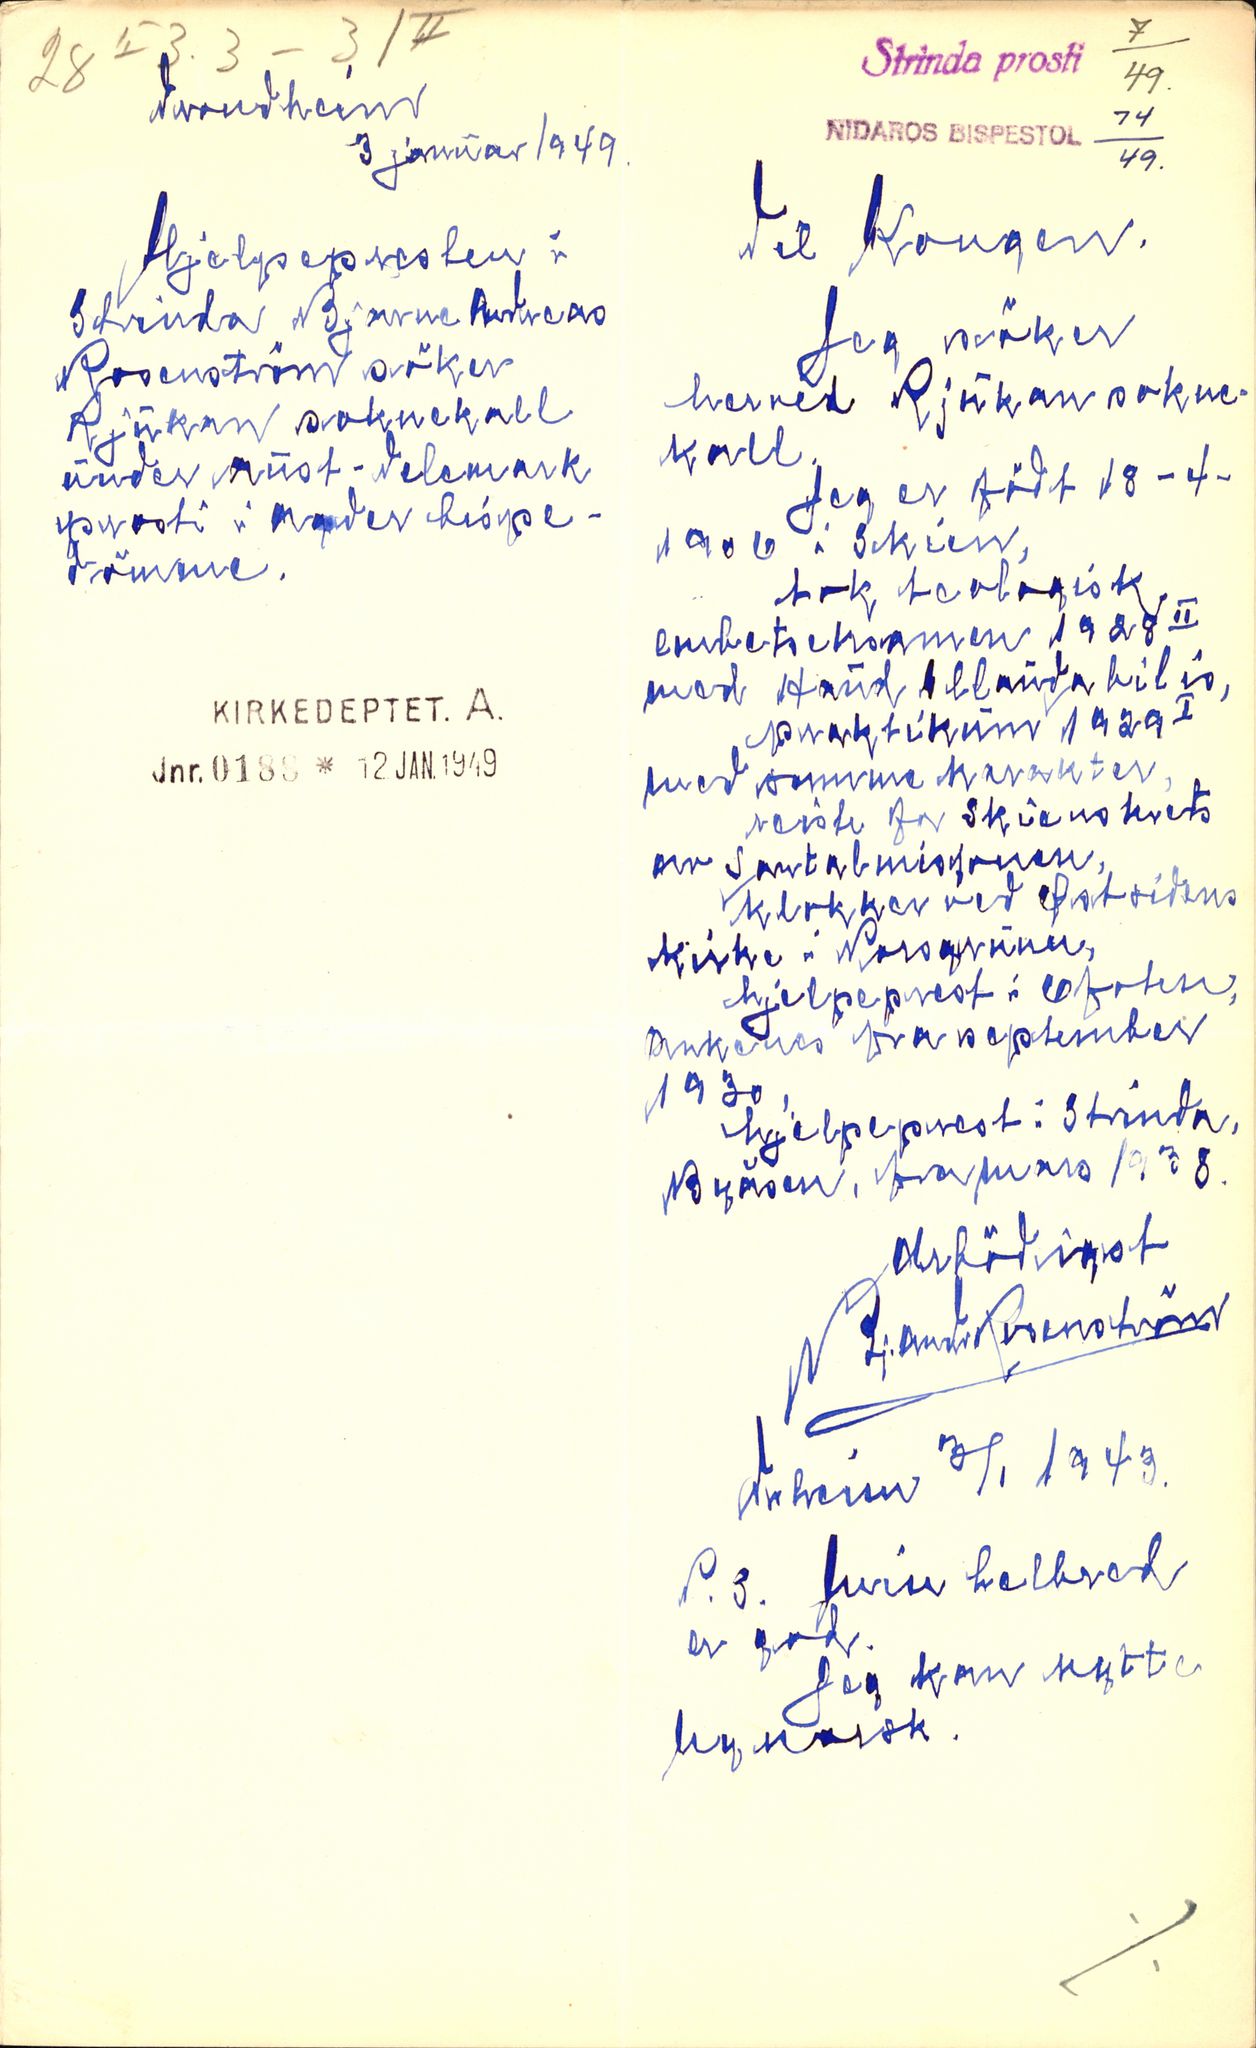 28 II 3. 3 - 3/II
Trondheim
3 januar 1949.
Hjelpepresten i
Strinda Bjarne Andreas
Rosenström söker
Rjukan soknekall
under Aust-Telemark
prosti i Agder bispe-
dömme.
KIRKEDEPTET. A.
Jnr. 0188 * 12 JAN. 1949
Strinda prosti 7/49.
NIDAROS BISPESTOL 74/49.
Til Kongen.
Jeg söker
herved Rjukan sokne-
kall.
Jeg er födt 18-4-
1906 i Skien,
tok teologisk
embetseksamen 1928 II
med Haud illaudabilis,
praktikum 1929 I
med samme karakter,
reiste for Skienskrets
av Santalmisjonen,
klokker ved Østsidens
kirke i Porsgrunn,
hjelpeprest i Ofoten,
Ankenes fra september
1930,
hjelpeprest i Strinda,
Byåsen, fra mars 1938.
Ærbödigst
Bj. Andr. Rosenström
Trheim 3/1 1943.
P.S. Min helbred
er god.
Jeg kan nytte
nynorsk.
./.